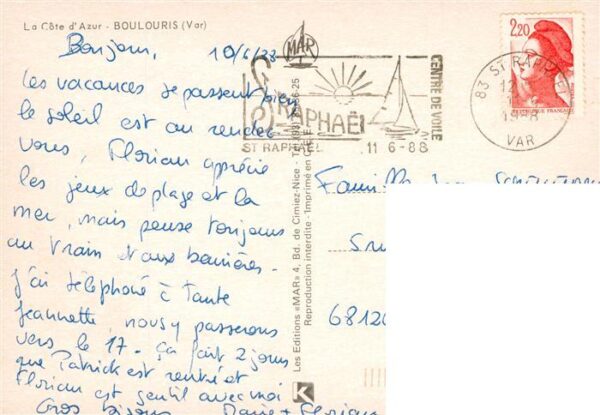 La Côte d'Azur - BOULOURIS (Var)
Bonjour, 10/6/88
Les vacances se passent bien
le soleil est au rendez
vous, Florian apprécie
les jeux de plage et la
mer, mais pense toujours
au train et aux barrières -
J'ai téléphoné à Tante
Jeannette, nous y passerons
vers le 17 - ça fait 2 jours
que Patrick est rentré et
Florian est gentil avec moi
Gros bisous Marie + Florian
MAR
ST RAPHAËL
CENTRE DE VOILE
ST RAPHAEL 11 6-88
2,20
83 ST RAPHAEL
VAR
Les Editions «MAR» 4, Bd. de Cimiez-Nice - Tél.
Reproduction interdite - Imprimé en
Famille
6812
K